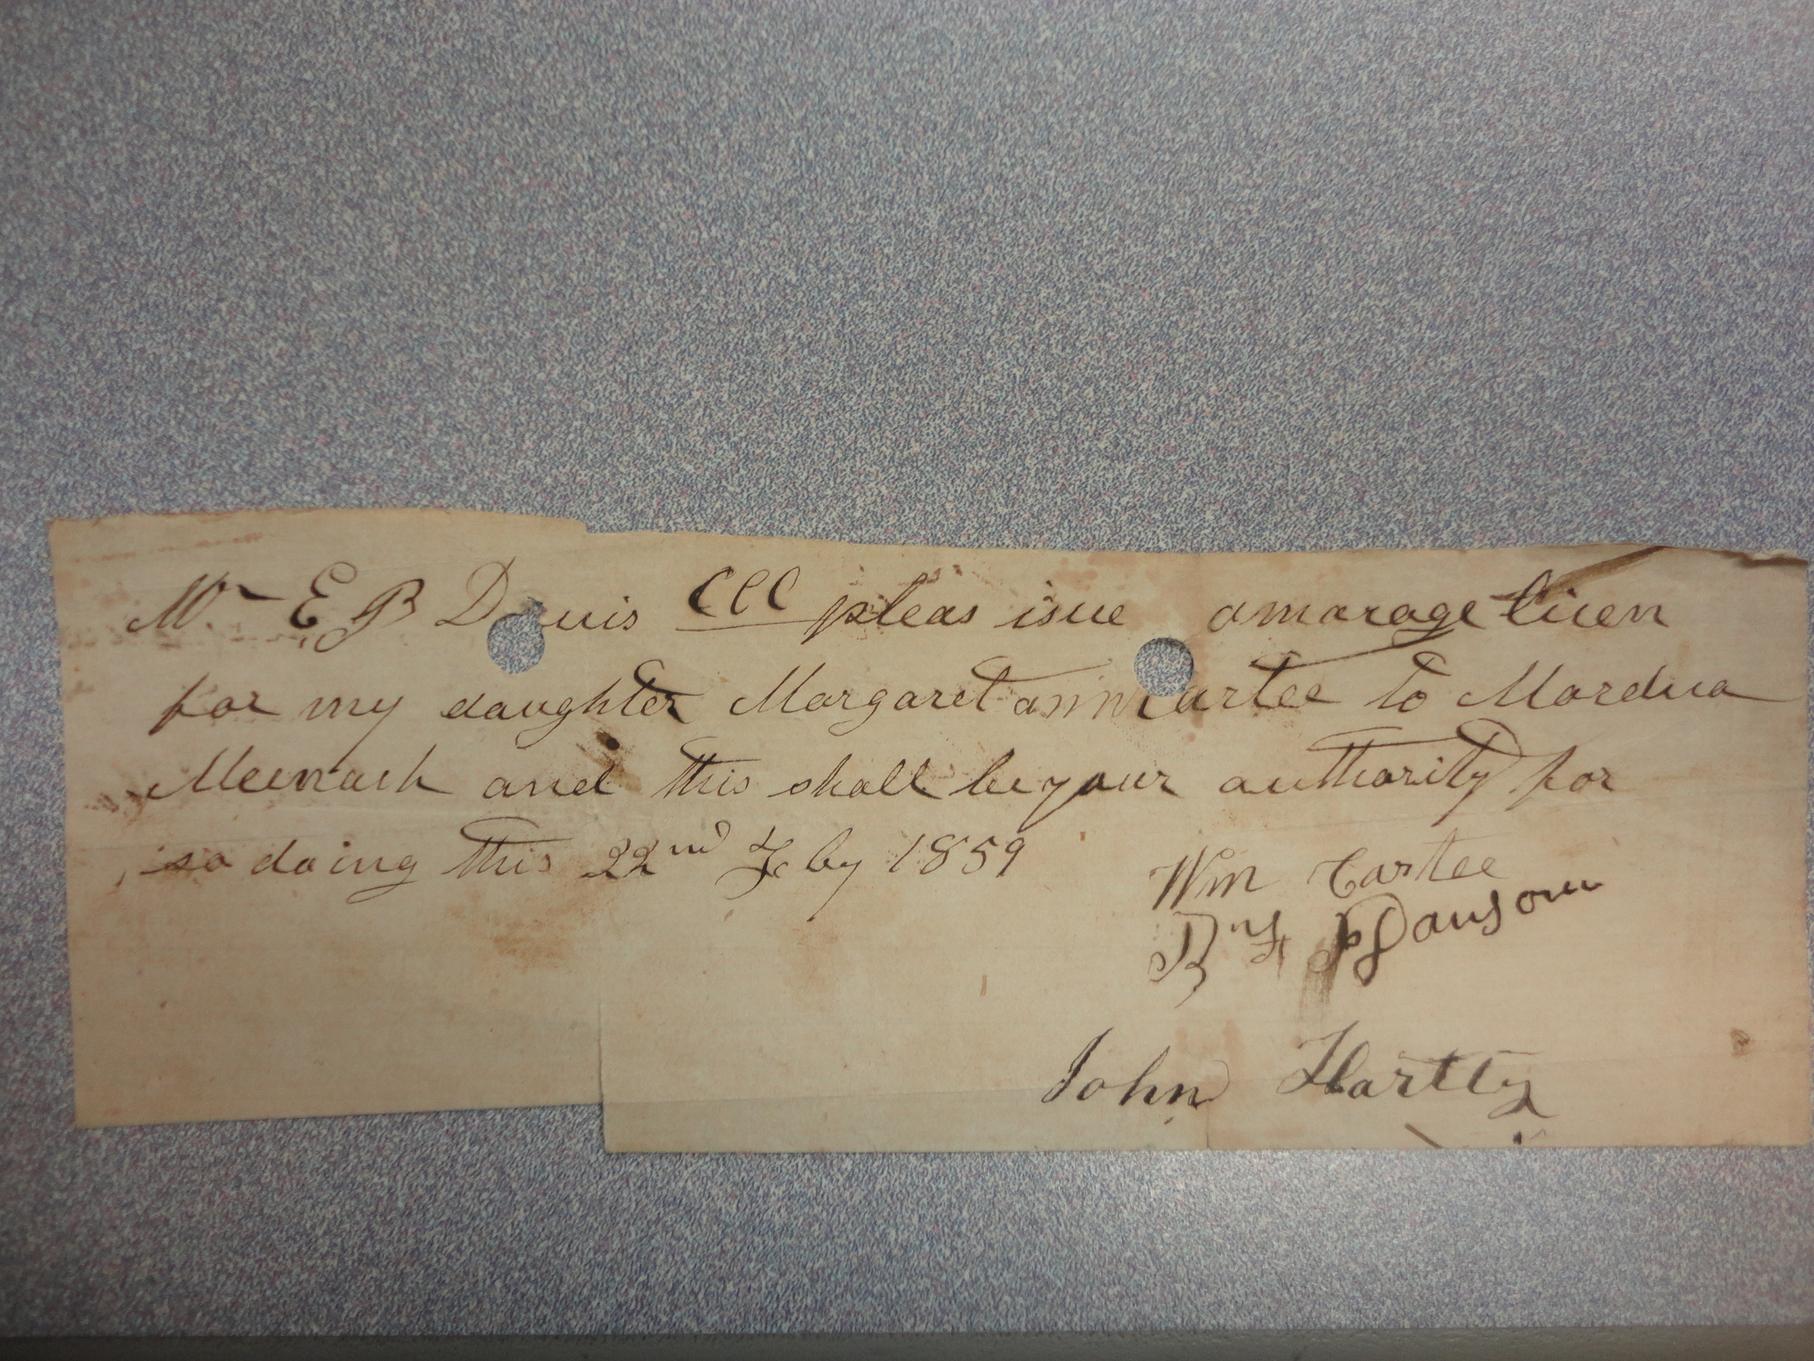 Mr E B Davis CCC pleas isue a marage licen
for my daughter Margaret ann Cartee to Mordica
Meenach and this shall be your authority for
so doing this 22nd Feby 1859
Wm Cartee
John Hartly